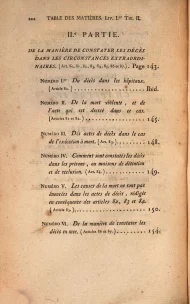 TABLE DES MATIÈRES. LIV. I.er TIT. II.
II.e PARTIE.
DE LA MANIÈRE DE CONSTATER LES DÉCÈS
DANS LES CIRCONSTANCES EXTRAORDI-
NAIRES. Page 143.
NUMÉRO I.er De décès dans les hôpitaux.
Ibid.
NUMÉRO II. De la mort violente, et de
l'acte qui est dressé dans ce cas.
145.
NUMÉRO III. Des actes de décès dans le cas
de l'exécution à mort. 148.
NUMÉRO IV. Comment sont constatés les décès
dans les prisons, ou maisons de détention
et de reclusion. 149.
NUMÉRO V. Les causes de la mort ne sont pas
énoncées dans les actes de décès, rédigés
en conséquence des articles 82, 83 et 84.
150.
NUMÉRO VI. De la manière de constater les
décès en mer. 154.